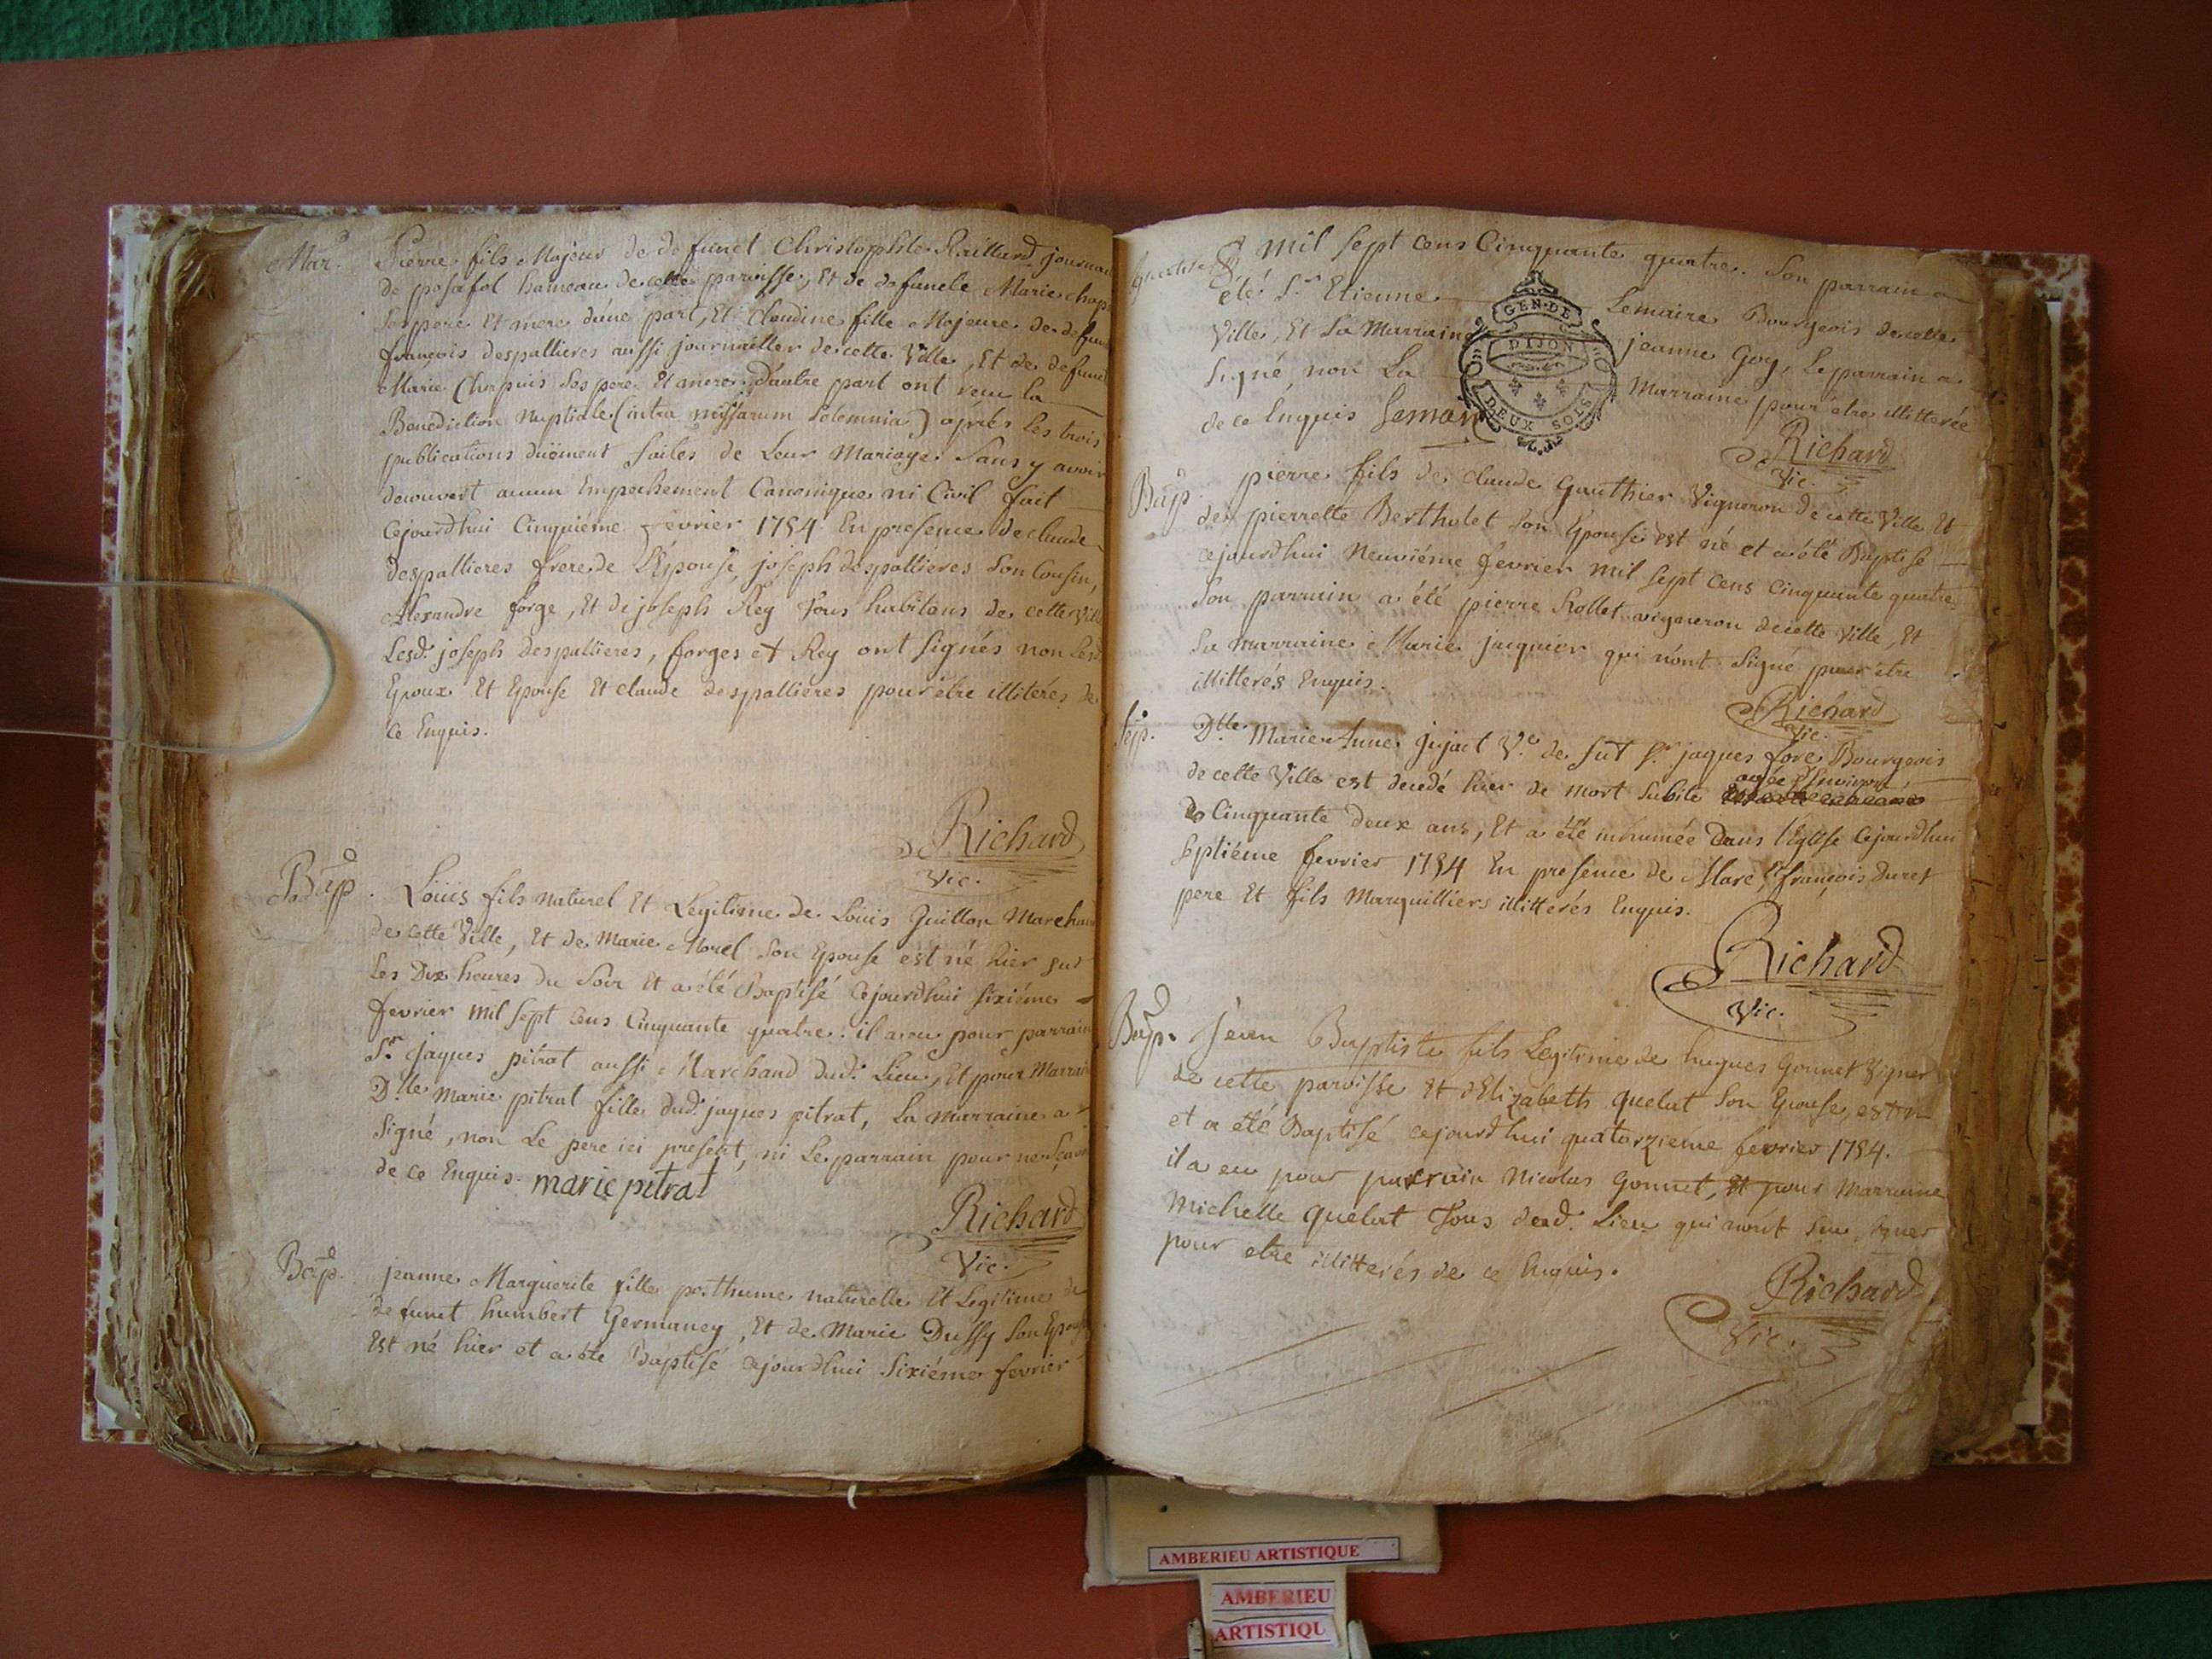 Mar.
Pierre fils Majeur de defunct Christophle Raillard journa
de posafol hameau de cette paroisse, Et de defuncte Marie chap
Ses pere Et mere d'une part, Et Claudine fille Majeure de defun
françois despallieres aussi journallier de cette Ville, Et de defunc
Marie Chorpuis Ses pere Et mere d'autre part ont reçu la
Benediction Nuptiale (intra missarum Solemnia) aprés les trois
publications düement faites de Leur Mariage Sans y avoir
decouvert aucun Empechement Canonique ni Civil fait
Cejourdhui Cinquiéme fevrier 1754 En presence de claude
despallieres frere de L'Epouse, joseph despallieres Son Cousin,
Alexandre forge, Et de joseph Rey Tous habitans de cette Ville
Lesd. joseph Despallieres, forges et Rey ont Signés non Lesd
Epoux Et Epouse Et claude despallieres pour étre illiterés de
Ce Enquis.
Richard
Vic.
Bap.
Loüis fils naturel Et Legitime de Loüis Guillon Marchan
de cette Ville, Et de Marie Morel Son Epouse est né hier sur
Les Dix heures du Soir Et a été Baptisé Cejourdhui Sixiéme
fevrier Mil Sept Cens Cinquante quatre. il a eu pour parrain
Sr. jaques pitrat aussi Marchand dud. Lieu, Et pour Marrain
Dlle Marie pitrat fille dud. jaques pitrat, La Marraine a
Signé, non Le pere ici present, ni Le parrain pour ne Scavoir
de ce Enquis. marie pitrat
Richard
Vic.
Bap.
jeanne Marguerite fille posthume naturelle Et Legitime de
defunct humbert Germaney, Et de Marie Dussy Son Epouse
Est né hier et a été Baptisé cejourdhui Sixiéme fevrier
mil Sept Cens Cinquante quatre. Son parrain a
été Sr. Etienne Lemaire Bourgeois de cette
Ville, Et La Marraine jeanne Goy, Le parrain a
Signé, non La Marraine pour être illitterée
de ce Enquis Lemaire
GEN. DE
DIJON
DEUX SOLS
Richard
Vic.
Bap.
pierre fils de claude Gauthier Vigneron de cette Ville Et
de pierrette Berthelet Son Epouse est né et a été Baptisé
cejourdhui Neuviéme fevrier mil Sept Cens Cinquante quatre
Son parrain a été pierre Rollet vigneron de cette Ville, Et
La marraine Marie jacquier qui n'ont Signé pour être
illitterés Enquis.
Richard
Vic.
Sep.
Dlle Marie Anne Jujact Ve. de fut Sr. jaques fore Bourgeois
de cette Ville est decedé hier de mort Subite agée d'Environ
de Cinquante deux ans, Et a été inhumée Dans l'Eglise Cejourdhui
Septiéme fevrier 1754 En presence de Marc, Et françois Duret
pere Et fils Marguilliers illitterés Enquis.
Richard
Vic.
Bap.
Jean Baptiste fils Legitime de hugues Gonnet Vigner
de cette paroisse Et d'Elizabeth quelat Son Epouse, est n
et a été Baptisé cejourdhui quatorzieme fevrier 1754.
il a eu pour parrain Nicolas Gonnet, Et pour Marraine
Michelle quelat Tous dud. Lieu qui n'ont Sçu Signer
pour etre illitterés de ce Enquis.
Richard
Vic.
AMBERIEU ARTISTIQUE
AMBERIEU
ARTISTIQU